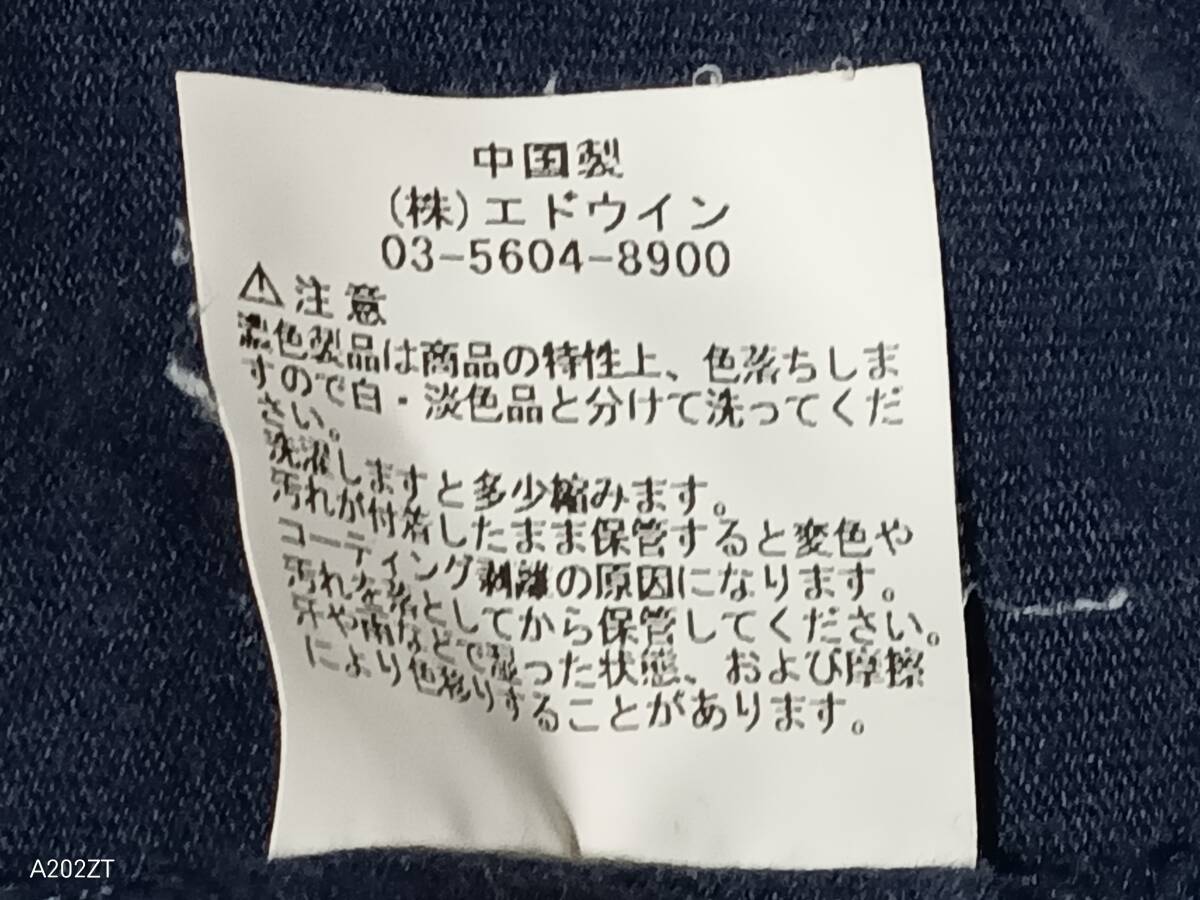 中国製
(株)エドウイン
03-5604-8900
⚠注意
濃色製品は商品の特性上、色落ちしま
すので白・淡色品と分けて洗ってくだ
さい。
洗濯しますと多少縮みます。
汚れが付着したまま保管すると変色や
コーティング剥離の原因になります。
汚れを落としてから保管してください。
汗や雨などで湿った状態、および摩擦
により色移りすることがあります。
A202ZT